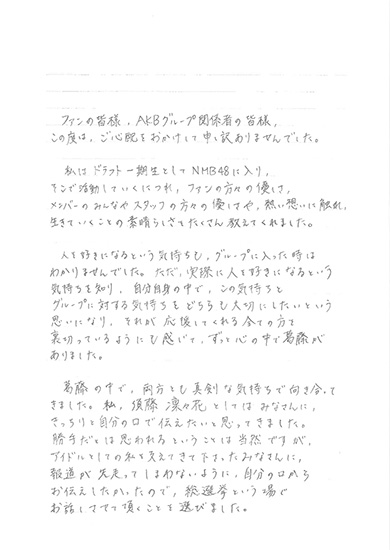 ファンの皆様，AKBグループ関係者の皆様，
この度は，ご心配をおかけして申し訳ありませんでした。
私はドラフト一期生としてNMB48に入り，
そこで活動していくにつれ，ファンの方々の優しさ，
メンバーのみんなやスタッフの方々の優しさや，熱い想いに触れ，
生きていくことの素晴らしさをたくさん教えてくれました。
人を好きになるという気持ちも，グループに入った時は
わかりませんでした。ただ，実際に人を好きになるという
気持ちを知り，自分自身の中で，この気持ちと
グループに対する気持ちをどちらも大切にしたいという
思いになり，それが応援してくれる全ての方を
裏切っているようにも感じて，ずっと心の中で葛藤が
ありました。
葛藤の中で，両方とも真剣な気持ちで向き合って
きました。私，須藤凜々花としてはみなさんに，
きっちりと自分の口で伝えたいと思ってきました。
勝手だとは思われるということは当然ですが，
アイドルとしての私を支えてきて下さったみなさんに，
報道が先走ってしまわないように，自分の口から
お伝えしたかったので，総選挙という場で
お話しさせて頂くことを選びました。